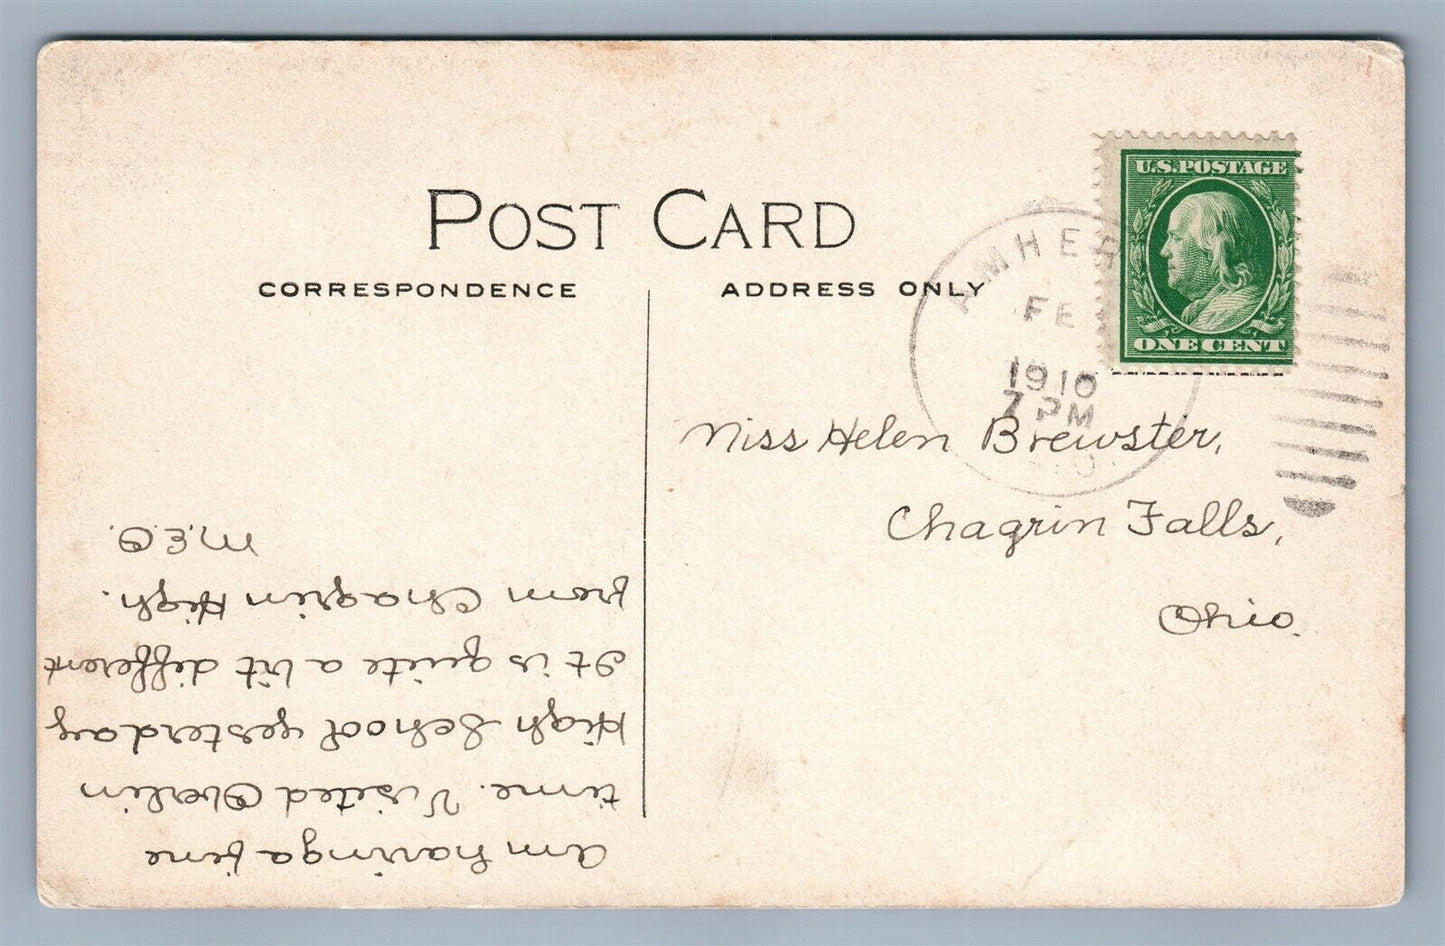 POST CARD
CORRESPONDENCE
ADDRESS ONLY
U.S. POSTAGE
ONE CENT
AMHER
FE
1910
7 PM
O.
Miss Helen Brewster,
Chagrin Falls,
Ohio.
Am having a fine
time. Visited Oberlin
High School yesterday
It is quite a bit different
from Chagrin High.
M.E.O.